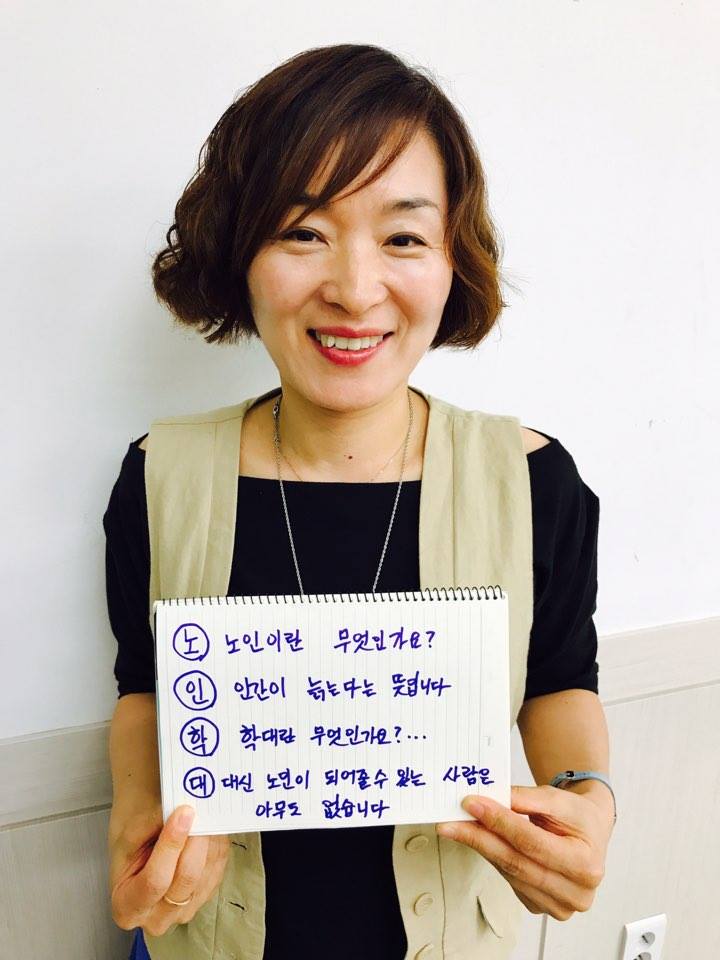 노 노인이란 무엇인가요?
인 인간이 늙는다는 뜻입니다
학 학대란 무엇인가요?...
대 대신 노인이 되어줄 수 있는 사람은
아무도 없습니다